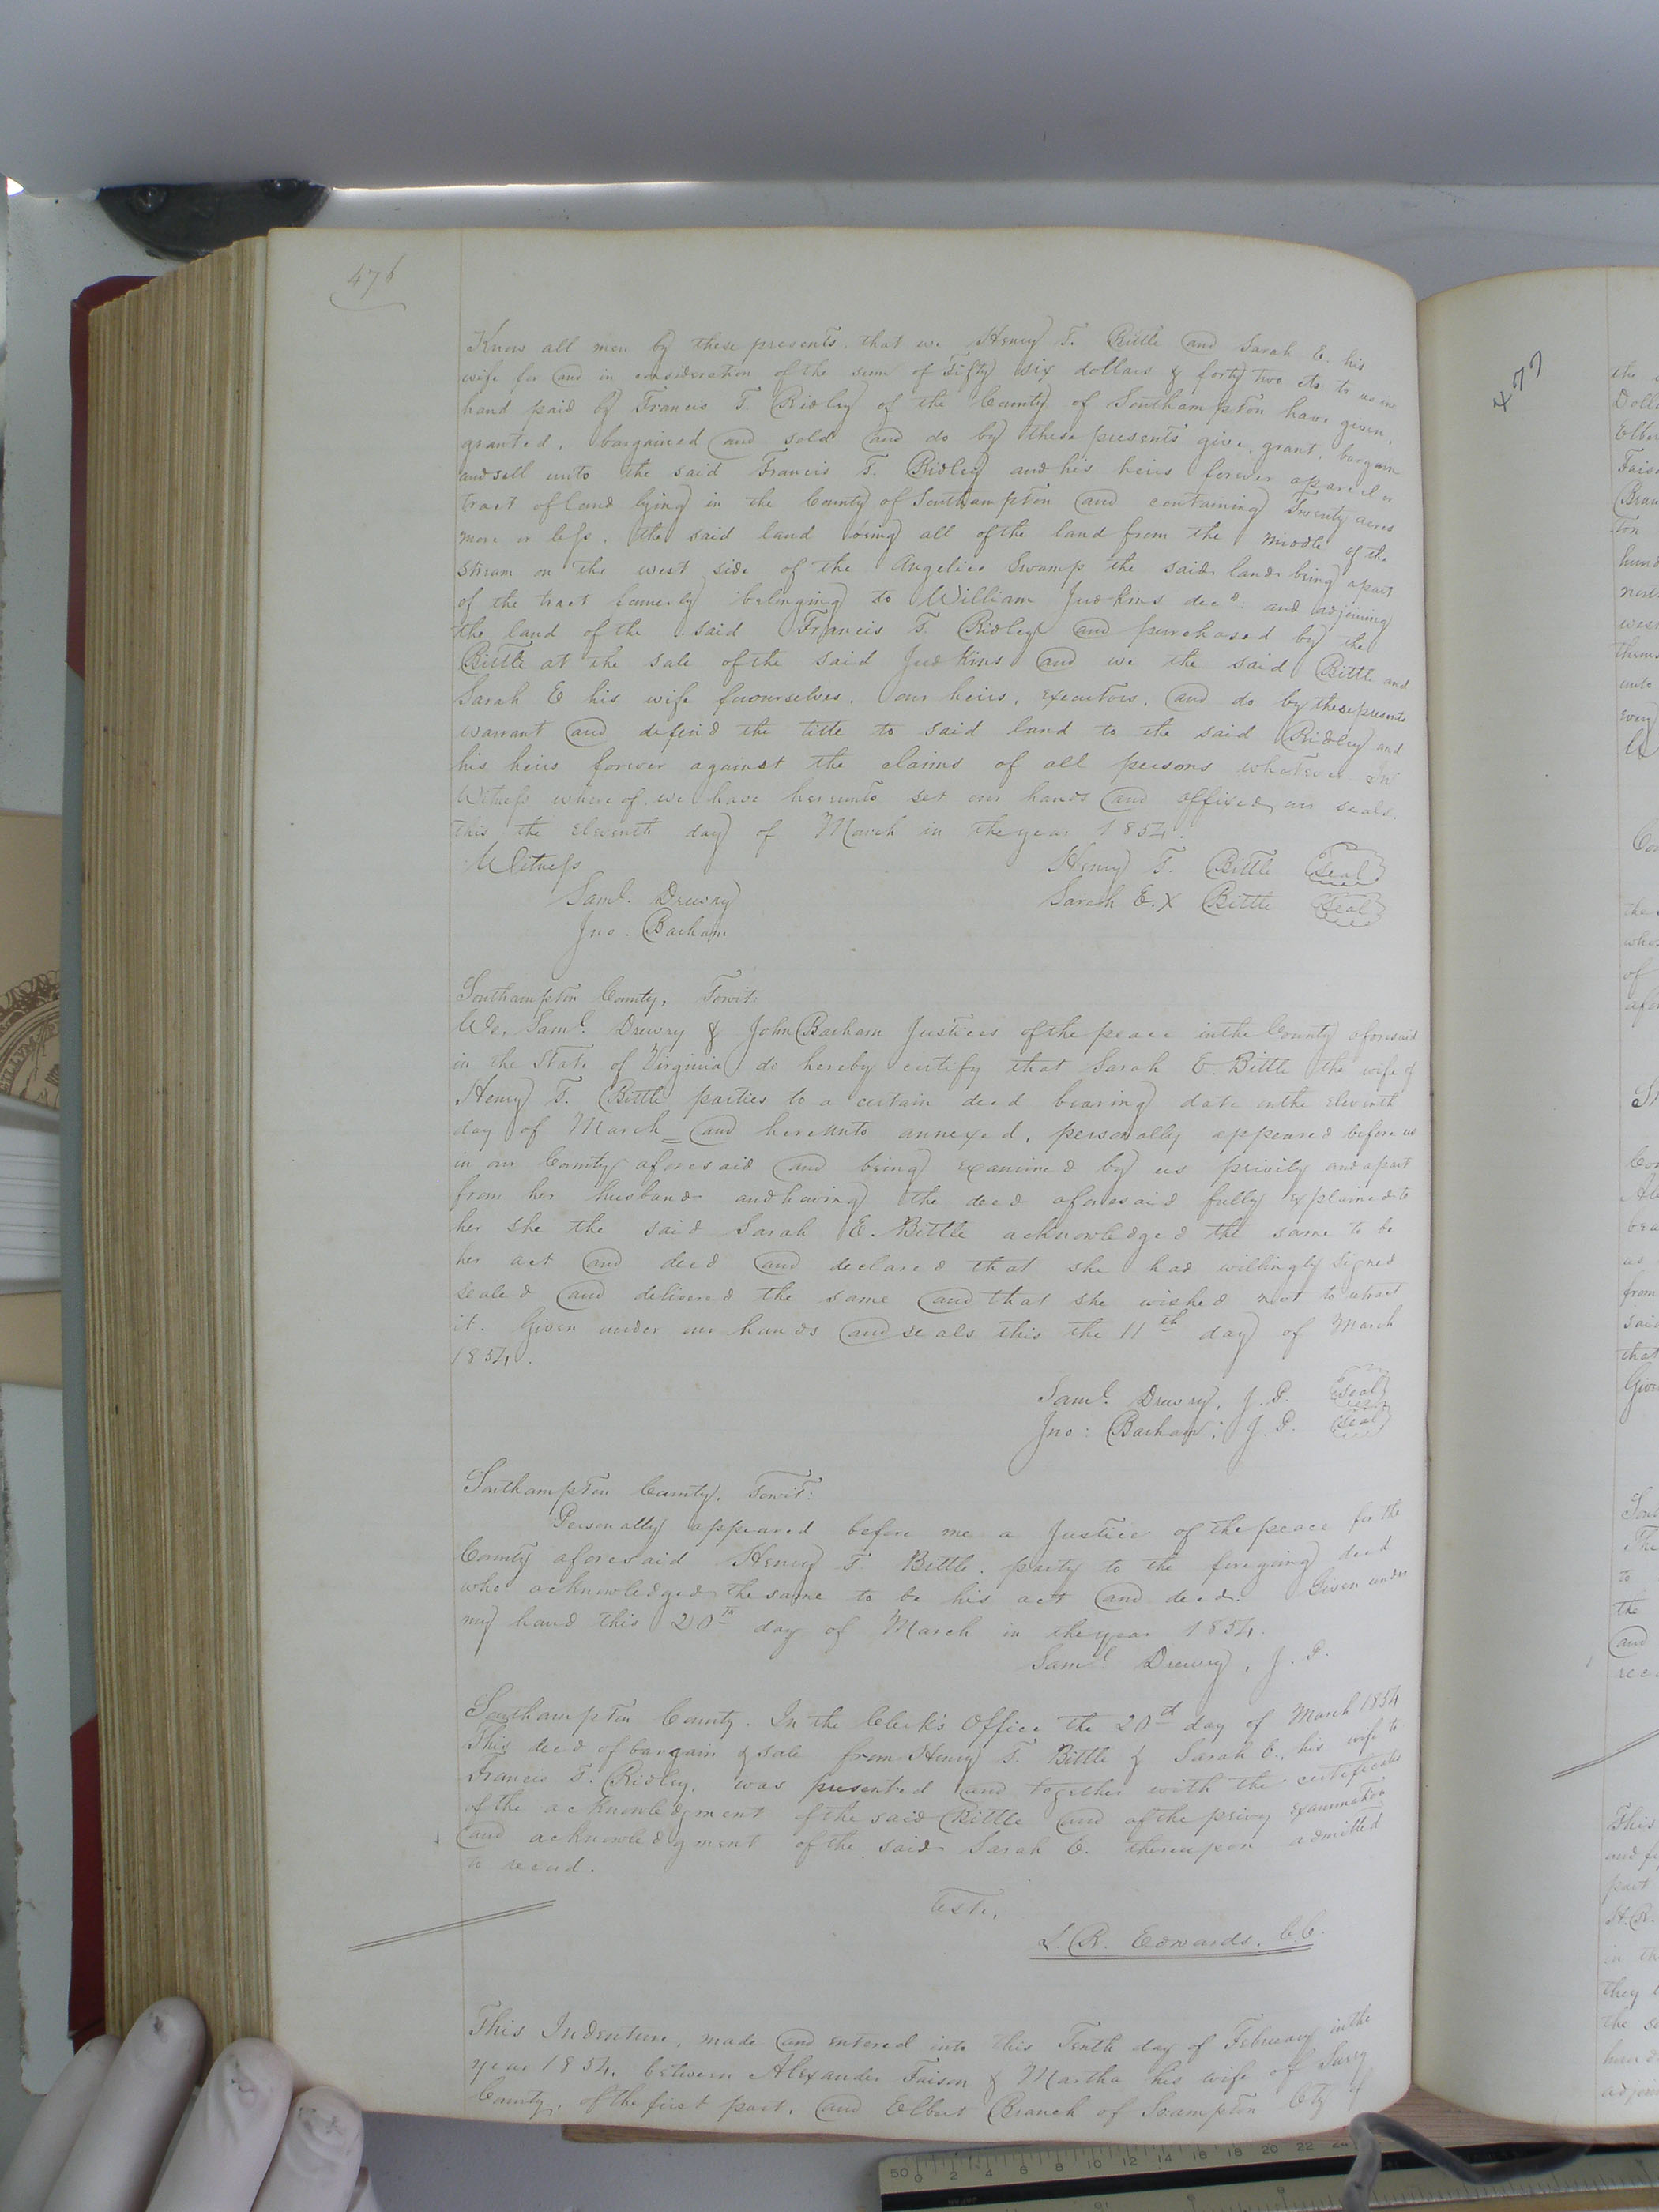 476
Know all men by these presents. that we Henry T. Bittle and Sarah E. his
wife for and in consideration of the sum of Fifty six dollars & forty two cts to us in
hand paid by Francis T. Ridley of the County of Southampton have given,
granted, bargained and sold and do by these presents give, grant, bargain
and sell unto the said Francis T. Ridley and his heirs forever a parcel or
tract of land lying in the County of Southampton and containing Twenty acres
more or less. the said land being all of the land from the middle of the
stream on the west side of the Angelico Swamp the said land being a part
of the tract formerly belonging to William Judkins decd. and adjoining
the land of the said Francis T. Ridley and purchased by the
Bittle at the sale of the said Judkins and we the said Bittle and
Sarah E his wife for ourselves. our heirs, executors, and do by these presents
warrant and defend the title to said land to the said Ridley and
his heirs forever against the claims of all persons whatever In
Witness whereof we have hereunto set our hands and affixed our seals.
this the Eleventh day of March in the year 1854.
Witness Henry T. Bittle (Seal)
Saml. Drewry Sarah E. X Bittle (Seal)
Jno. Barham
Southampton County, Towit:
We, Saml. Drewry & John Barham Justices of the peace in the County aforesaid
in the State of Virginia do hereby certify that Sarah E. Bittle the wife of
Henry T. Bittle parties to a certain deed bearing date on the Eleventh
day of March and hereunto annexed, personally appeared before us
in our County aforesaid and being examined by us privily and apart
from her husband and having the deed aforesaid fully explained to
her she the said Sarah E. Bittle acknowledged the same to be
her act and deed and declared that she had willingly signed
sealed and delivered the same and that she wished not to retract
it. Given under our hands and seals this the 11th day of March
1854.
Saml. Drewry, J.P. (Seal)
Jno: Barham; J.P. (Seal)
Southampton County, Towit:
Personally appeared before me a Justice of the peace for the
County aforesaid Henry T. Bittle, party to the foregoing deed
who acknowledged the same to be his act and deed. Given under
my hand this 20th day of March in the year 1854.
Saml. Drewry, J.P.
Southampton County. In the Clerk's Office the 20th day of March 1854
This deed of bargain & sale from Henry T. Bittle & Sarah E., his wife to
Francis T. Ridley, was presented and together with the certificates
of the acknowledgment of the said Bittle and of the privy examination
and acknowledgment of the said Sarah E. thereupon admitted
to record.
Teste,
L. R. Edwards. C.C.
This Indenture, made and entered into this Tenth day of February in the
year 1854, between Alexander Faison & Martha his wife of Surry
County, of the first part, and Elbert Branch of Sampton Cty of
477